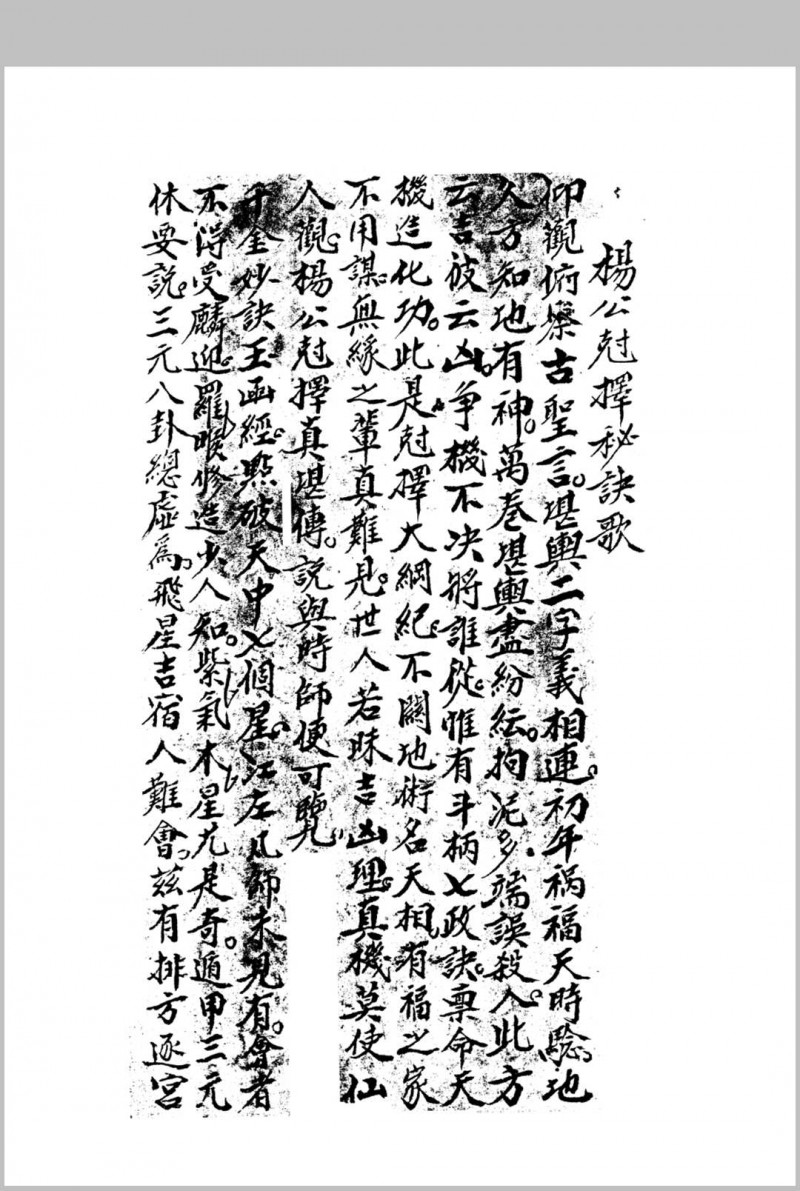 楊公尅擇秘訣歌
仰觀俯察古聖言。堪輿二字義相連。初年禍福天時驗。地
久方知地有神。萬卷堪輿盡紛紜。拘泥多端誤殺人。此方
云吉彼云凶。爭機不决將誰從。惟有斗柄七政訣。禀命天
機造化功。此是尅擇大綱紀。不關地術名天相。有福之家
不用謀。無緣之輩真難見。世人若昧吉凶理。真機莫使仙
人觀。楊公尅擇真堪傳。説與時師便可覽。
千金妙訣玉函經。點破天中七個星。江左凡師未見有。會者
不得受麟迎。羅㬋修造少人知。紫氣木星尤是奇。遁甲三元
休要説。三元八卦總虛為。飛星吉宿人難會。兹有排方逐宮